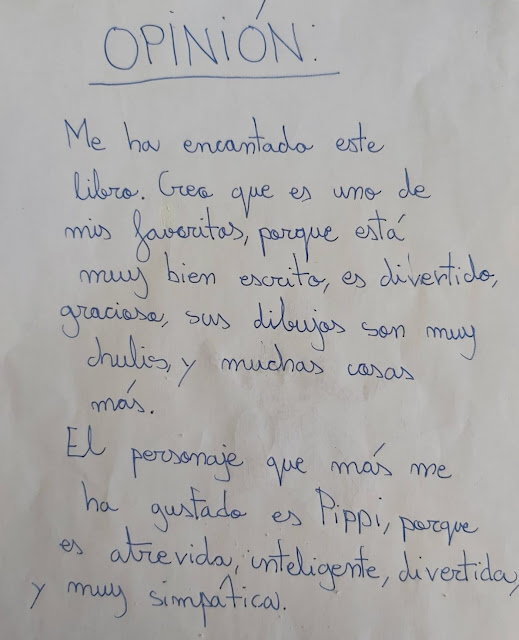 OPINIÓN:
Me ha encantado este
libro. Creo que es uno de
mis favoritos, porque está
muy bien escrito, es divertido,
gracioso, sus dibujos son muy
chulis, y muchas cosas
más.
El personaje que más me
ha gustado es Pippi, porque
es atrevida, inteligente, divertida,
y muy simpática.